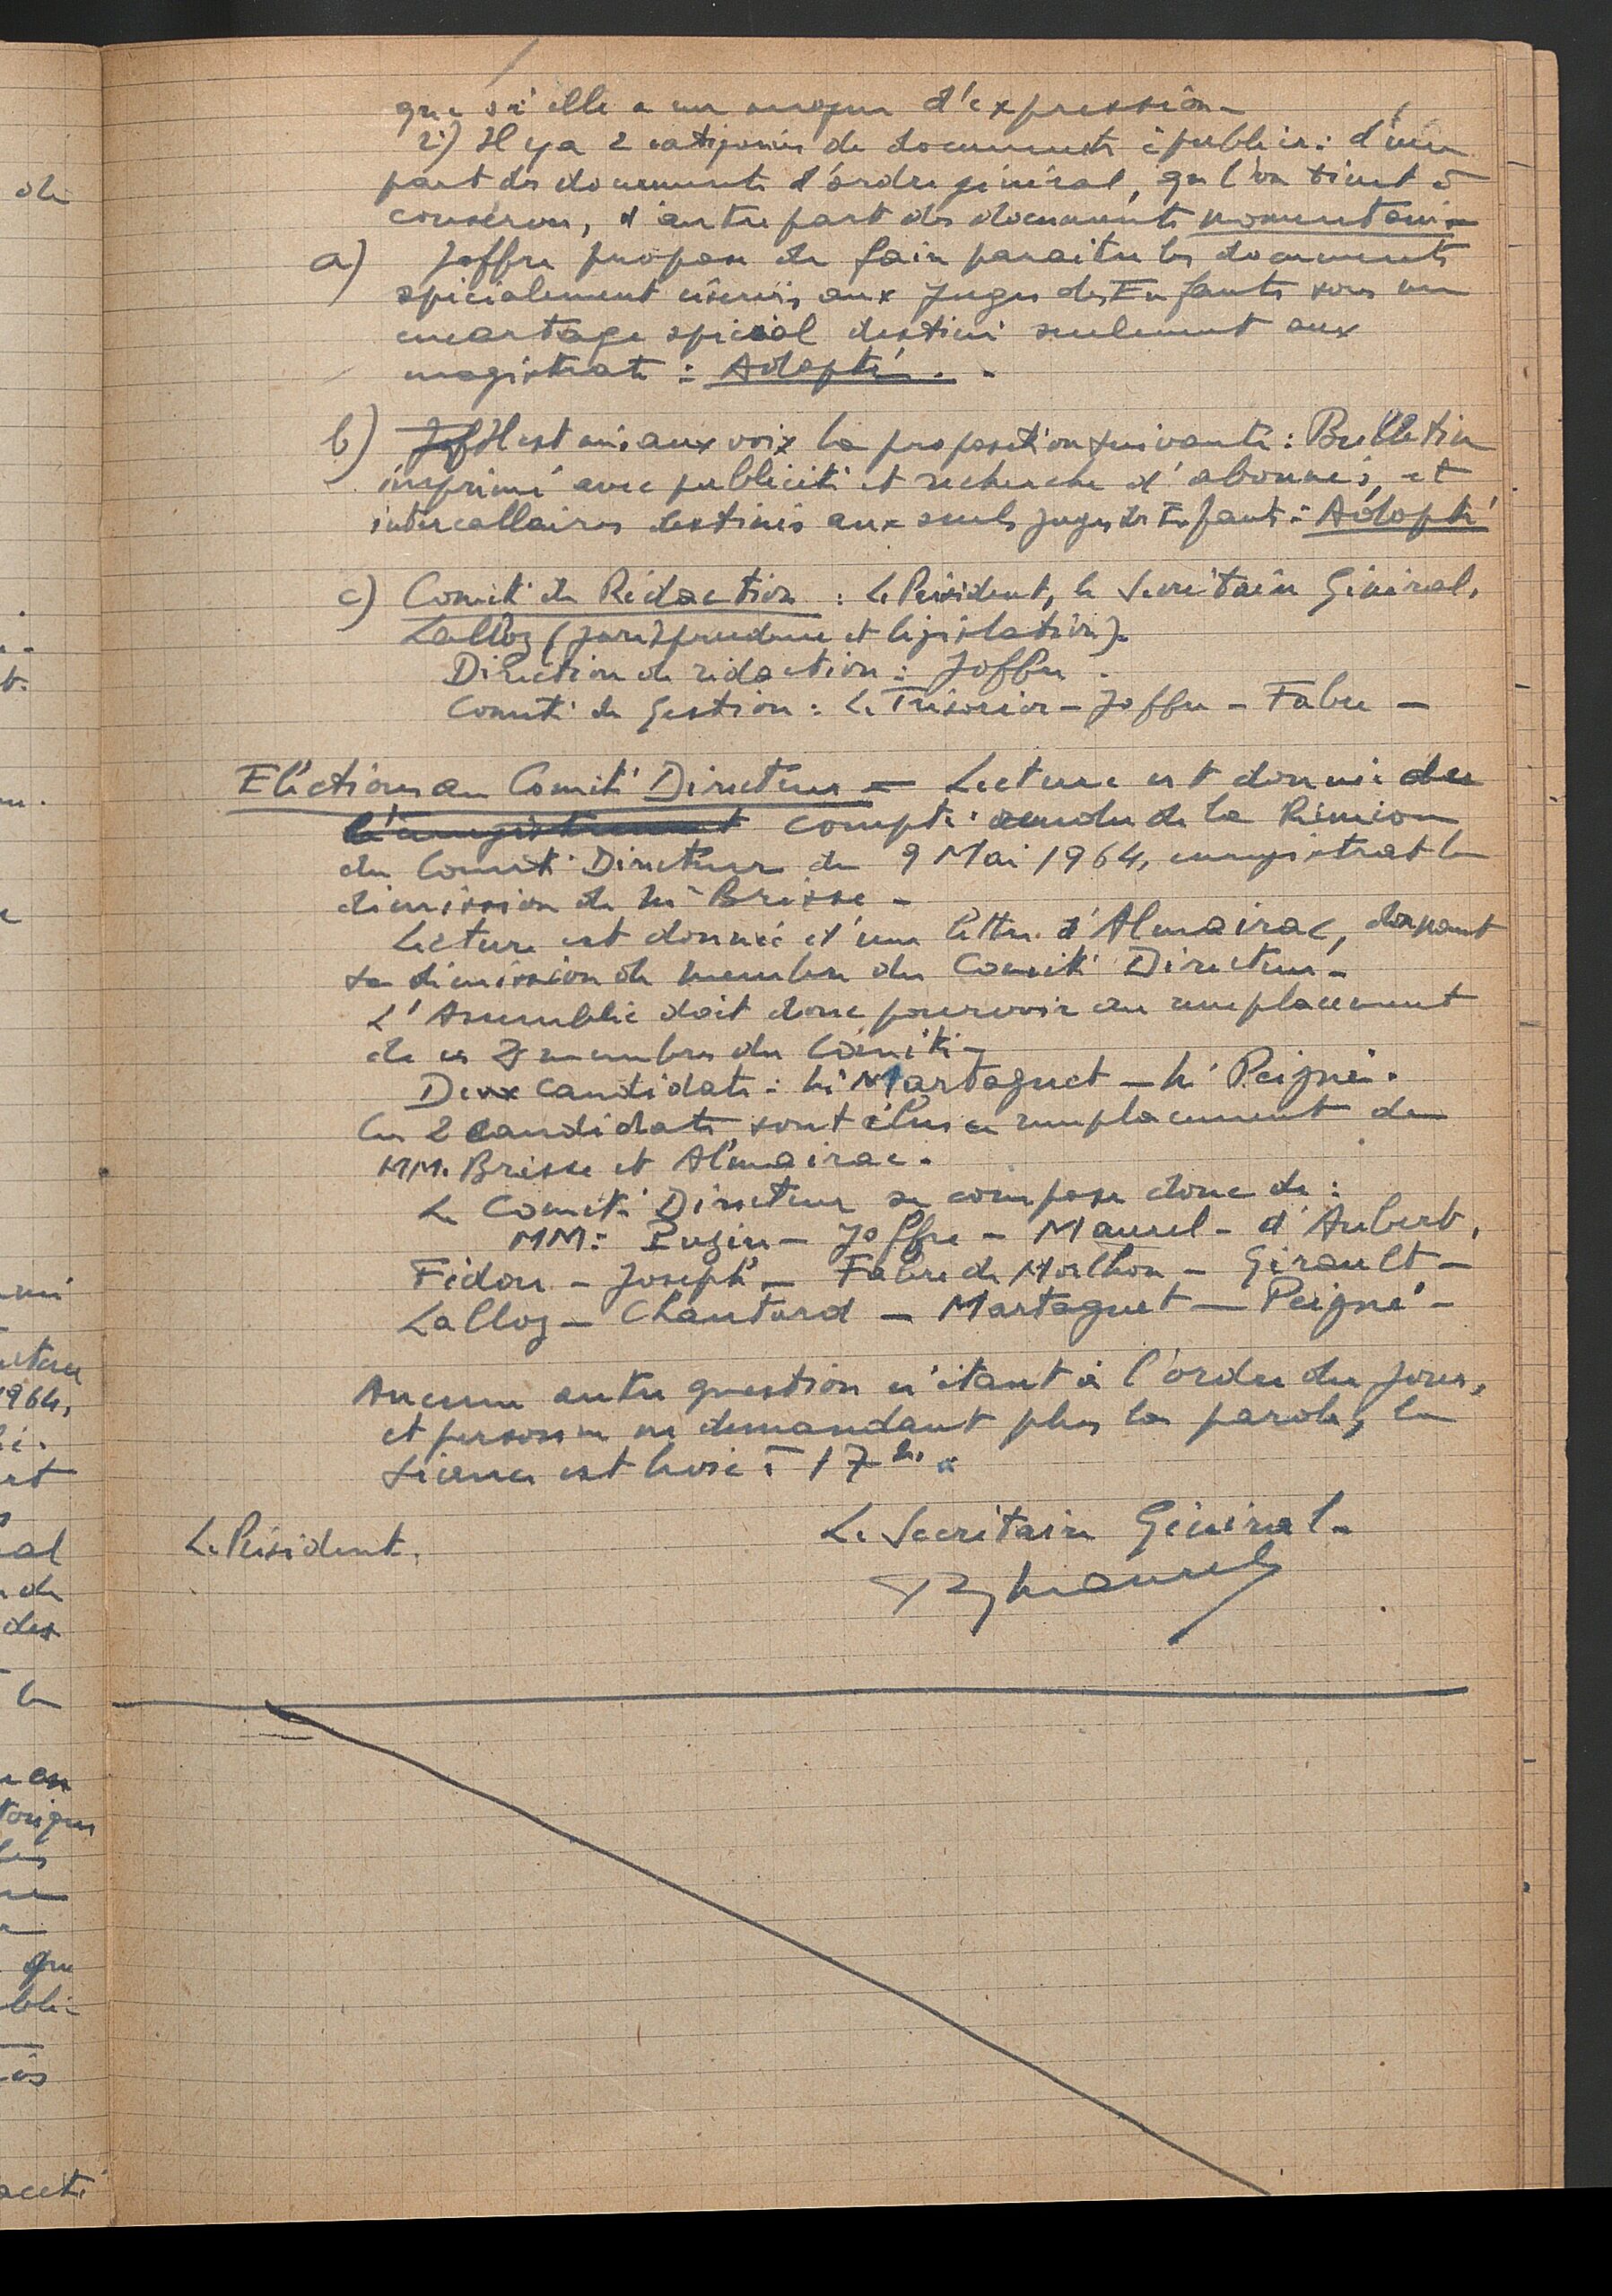 que si elle a un moyen d'expression
2) Il y a 2 catégories de documents à publier : d'une
part des documents d'ordre général, que l'on tient à
conserver, d'autre part des documents momentanés
a) Joffre propose de faire paraitre les documents
spécialement réservés aux Juges des Enfants sous un
encartage spécial destiné seulement aux
magistrats : Adopté. -
b) Jof Il est mis aux voix la proposition suivante : Bulletin
imprimé avec publicité et recherche d'abonnés, et
intercallaires destinés aux seuls juges des Enfants : Adopté
c) Comité de Rédaction : Le Président, le Secrétaire Général,
Lalloz (jurisprudence et législation).
Direction de rédaction : Joffre.
Comité de Gestion : Le Trésorier - Joffre - Fabre -
Elections au Comité Directeur = Lecture est donnée du
l'enregistrement compte rendu de la Réunion
du Comité Directeur du 9 Mai 1964, enregistrant la
démission de Mr Brisse -
Lecture est donnée d'une lettre d'Almairac, donnant
sa démission de membre du Comité Directeur -
L'Assemblée doit donc pourvoir au remplacement
de ces 2 membres du Comité -
Deux candidats : Mr Martaguet - Mr Peigné.
Ces 2 candidats sont élus en remplacement de
MM. Brisse et Almairac.
Le Comité Directeur se compose donc de :
MM : Puzin - Joffre - Maurel - d'Aubert,
Fédou - Joseph - Fabre de Morlhon - Girault -
Lalloz - Chantard - Martaguet - Peigné -
Aucune autre question n'étant à l'ordre du jour,
et personne ne demandant plus la parole, la
séance est levée à 17 h.
Le Président.
Le Secrétaire Général -
Maurel